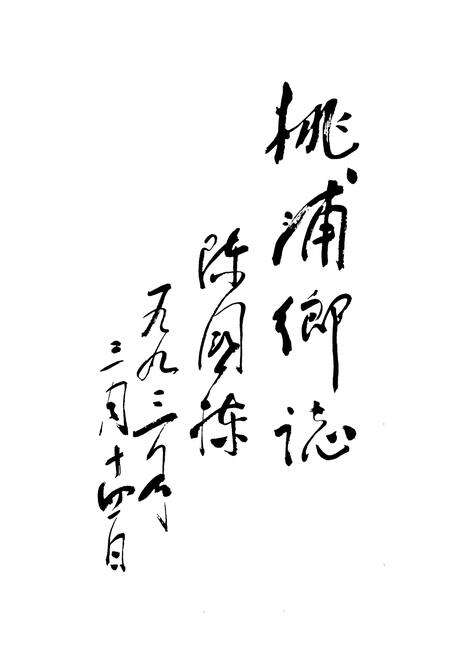 桃浦鄉誌
陈國栋
一九九三年
三月十四日